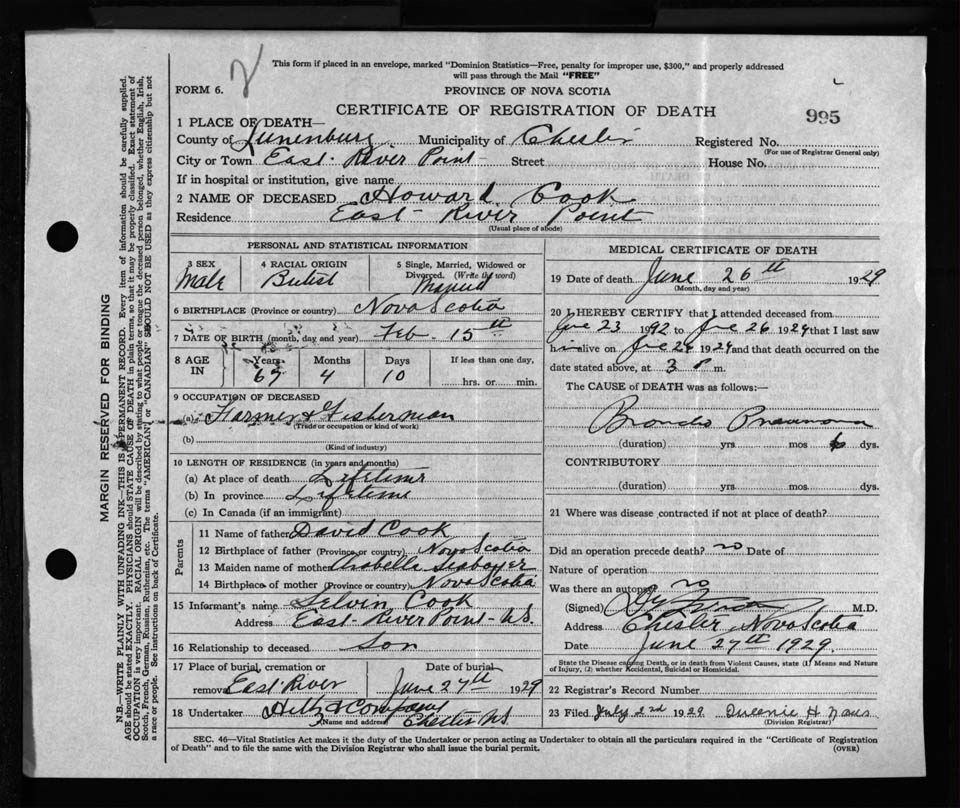 2
This form if placed in an envelope, marked "Dominion Statistics—Free, penalty for improper use, $300," and properly addressed
will pass through the Mail "FREE"
FORM 6.
PROVINCE OF NOVA SCOTIA
CERTIFICATE OF REGISTRATION OF DEATH
995
1 PLACE OF DEATH—
County of Lunenburg Municipality of Chester Registered No.
(For use of Registrar General only)
City or Town East River Point Street House No.
If in hospital or institution, give name
2 NAME OF DECEASED Howard Cook
Residence East River Point
(Usual place of abode)
PERSONAL AND STATISTICAL INFORMATION
3 SEX Male
4 RACIAL ORIGIN British
5 Single, Married, Widowed or Divorced. (Write the word) Married
6 BIRTHPLACE (Province or country) Nova Scotia
7 DATE OF BIRTH (month, day and year) Feb. 15th
8 AGE IN Years Months 4 Days 10 If less than one day, hrs. or min.
9 OCCUPATION OF DECEASED
(a) Farmer & Fisherman
(Trade or occupation or kind of work)
(b)
(Kind of industry)
10 LENGTH OF RESIDENCE (in years and months)
(a) At place of death Lifetime
(b) In province Lifetime
(c) In Canada (if an immigrant)
Parents
11 Name of father David Cook
12 Birthplace of father (Province or country) Nova Scotia
13 Maiden name of mother
14 Birthplace of mother (Province or country) Nova Scotia
15 Informant's name Selvin Cook
Address East River Point N.S.
16 Relationship to deceased Son
17 Place of burial, cremation or removal East River
Date of burial June 27th 1929
18 Undertaker & Company
(Name and address) Chester N.S.
MEDICAL CERTIFICATE OF DEATH
19 Date of death June 26th 1929
(Month, day and year)
20 I HEREBY CERTIFY that I attended deceased from
June 23 192 to June 26 1929 that I last saw
him alive on 1929 and that death occurred on the
date stated above, at 3 P.m.
The CAUSE of DEATH was as follows:—
Broncho Pneumonia
(duration) yrs. mos 6 dys.
CONTRIBUTORY
(duration) yrs. mos. dys.
21 Where was disease contracted if not at place of death?
Did an operation precede death? no Date of
Nature of operation
Was there an autopsy? no
(Signed) M.D.
Address Chester Nova Scotia
Date June 27th 1929.
State the Disease causing Death, or in death from Violent Causes, state (1) Means and Nature
of Injury, (2) whether Accidental, Suicidal or Homicidal.
22 Registrar's Record Number
23 Filed July 2nd 1929 Queenie H.
(Division Registrar)
SEC. 46—Vital Statistics Act makes it the duty of the Undertaker or person acting as Undertaker to obtain all the particulars required in the "Certificate of Registration
of Death" and to file the same with the Division Registrar who shall issue the burial permit.
(OVER)
MARGIN RESERVED FOR BINDING
N.B.—WRITE PLAINLY WITH UNFADING INK—THIS IS A PERMANENT RECORD. Every item of information should be carefully supplied.
AGE should be stated EXACTLY. PHYSICIANS should STATE CAUSE OF DEATH in plain terms, so that it may be properly classified. Exact statement of
OCCUPATION is very important. RACIAL ORIGIN will be described by stating to what people or tongue the deceased person belonged, whether English, Irish,
Scotch, French, German, Russian, Ruthenian, etc. The terms "AMERICAN" or "CANADIAN" SHOULD NOT BE USED as they express citizenship but not
a race or people. See instructions on back of Certificate.